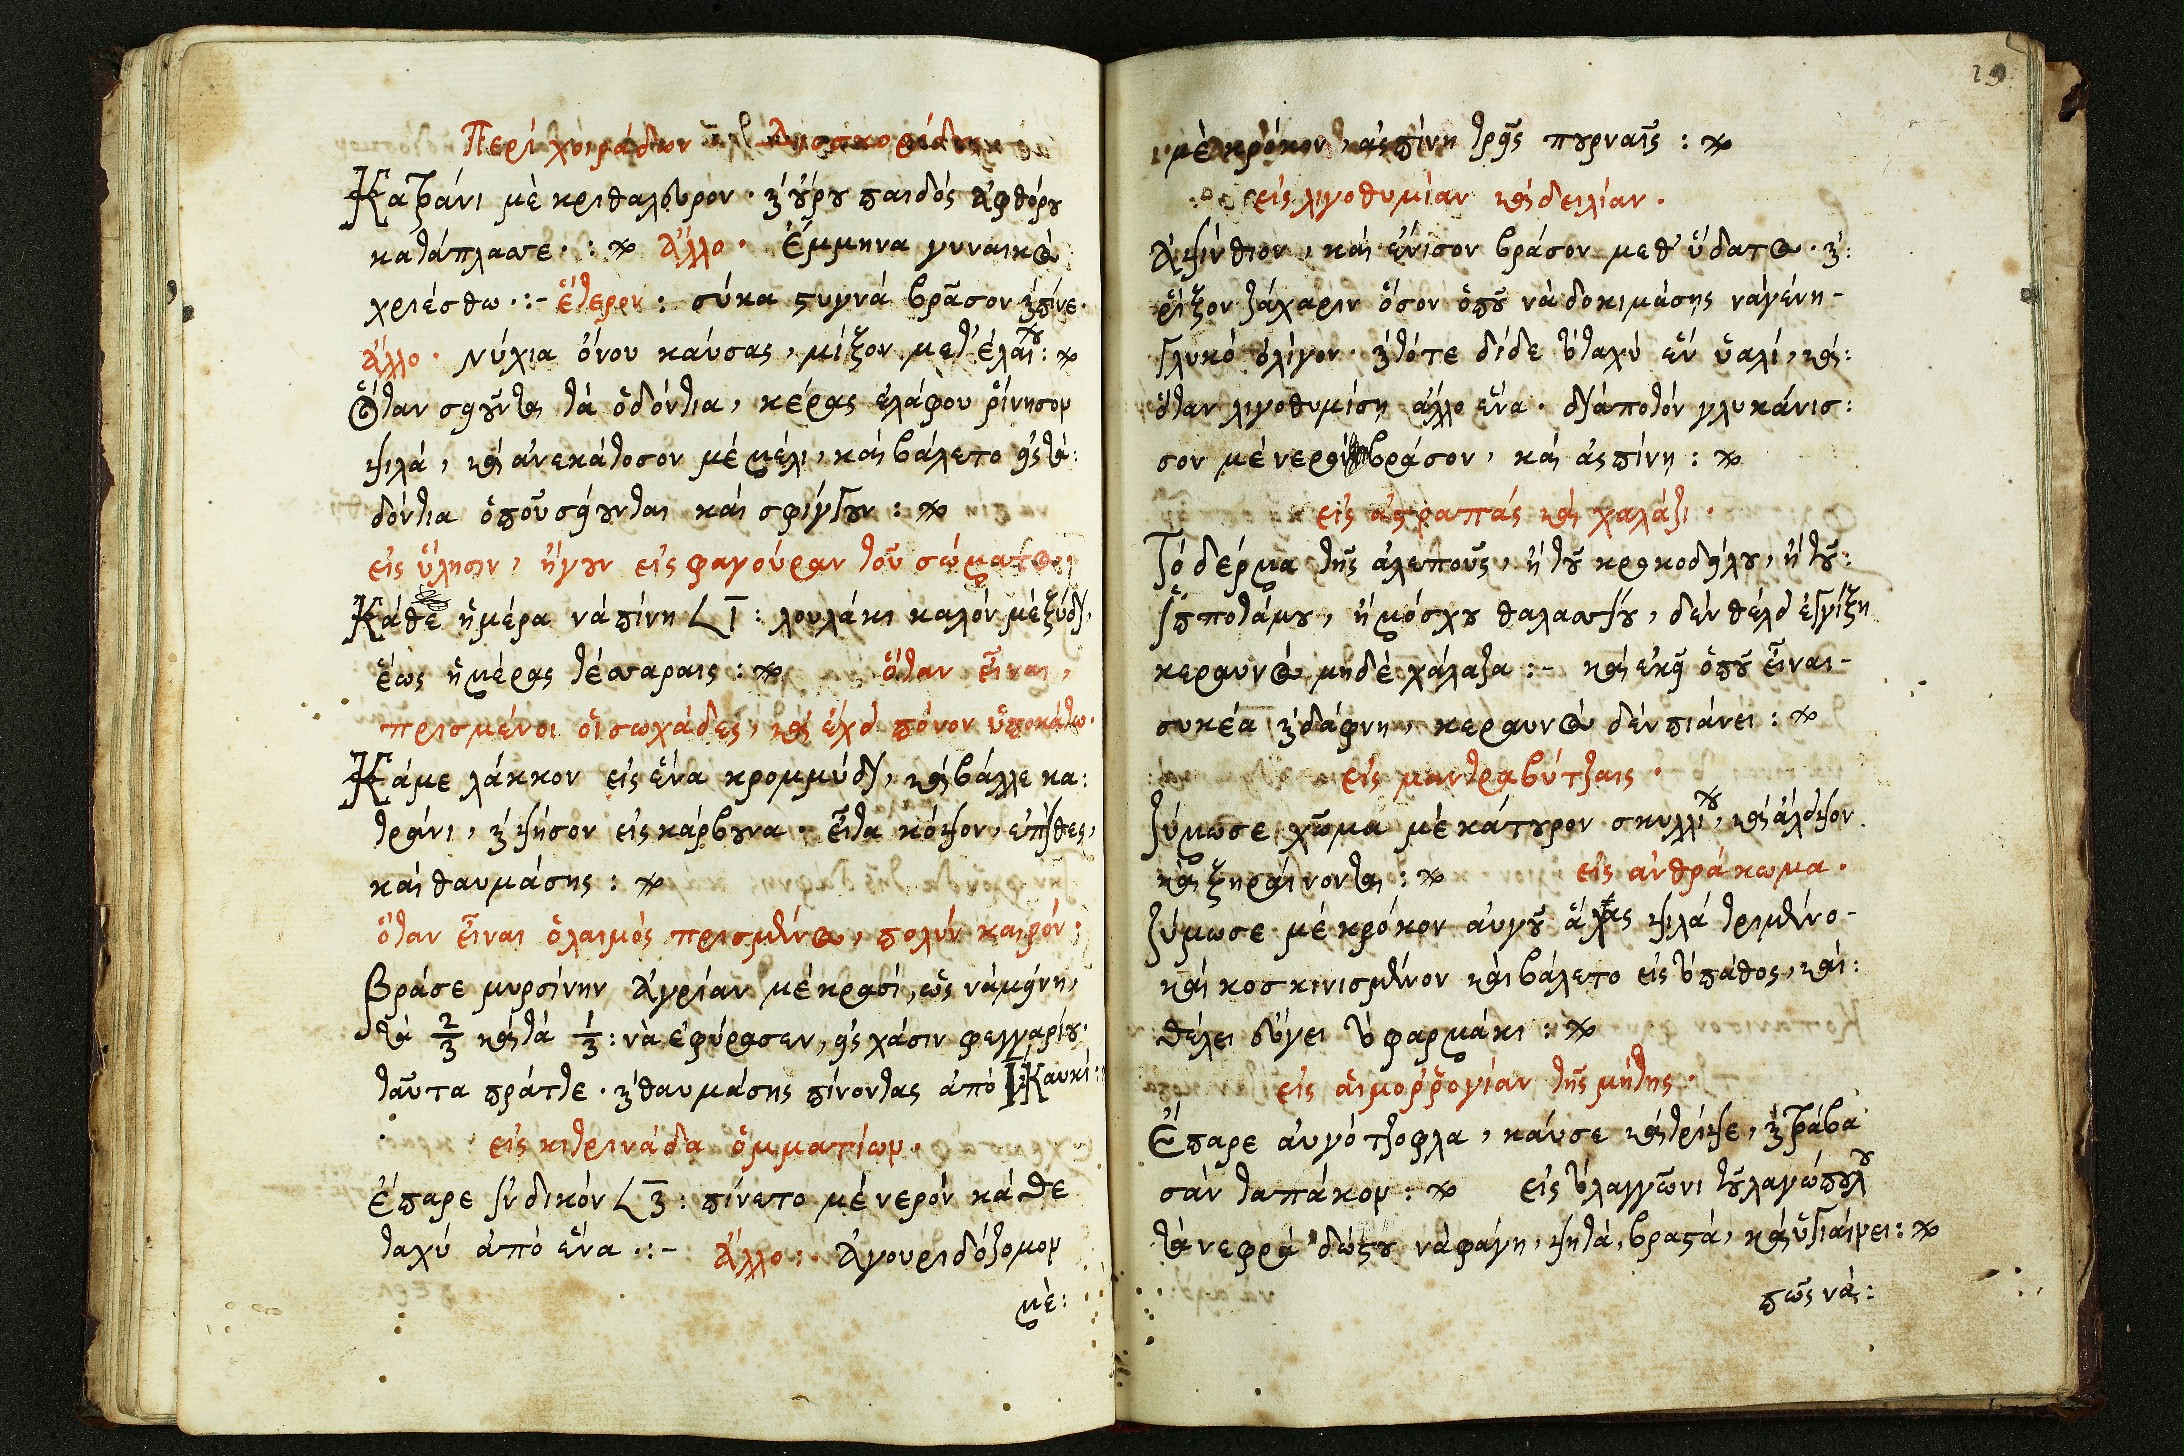 Περί χοιράδων
Κατράνι μὲ κριθαλευρον· καὶ οὖρου παιδός ἀφθόρου
κατάπλασσε·: Ἄλλο· Ἔμμηνα γυναικὸς
χριέσθω·:- ἕτερον: σύκα συγνά βράσον καὶ πίνε·
Ἄλλο· Νύχια ὄνου καύσας, μίξον μετ' ἐλαίου:
Ὅταν σειοῦνται τὰ ὀδόντια, κέρας ἐλάφου ῥίνησον
ψιλά, καὶ ἀνεκάτοσον μέ μέλι, καὶ βάλετο εἰς τὰ:
δόντια ὁποῦ σείουνται καὶ σφίγγουν:
εἰς ὕλησιν, ἤγουν εἰς φαγούραν τοῦ σώματος·
Κάθε ἡμέρα νὰ πίνη L Ι: λουλάκι καλόν μέ ξύδι,
ἕως ἡμέρας τέσσαραις: ὅταν εἶναι,
πρισμένοι οἱ σωχάδες, καὶ ἔχει πόνον ὑποκάτω·
Κάμε λάκκον εἰς ἕνα κρομμύδι, καὶ βάλλε κα:
τράνι, καὶ ψήσον εἰς κάρβουνα· εἶτα κόψον, ἐπίθες,
καὶ θαυμάσης:
ὅταν εἶναι ὁ λαιμός πρισμένος, πολύν καιρόν:
Βράσε μυρσίνην ἀγρίαν μέ κρασί, ὡς νὰ μείνη,
τὰ 2/3 καὶ τὰ 1/3: νὰ ἐφύρασεν, εἰς χάσιν φεγγαρίου·
ταῦτα πράττε· καὶ θαυμάσης πίνοντας ἀπό Ι Καυκί:
εἰς κιτρινάδα ὀμματίων·
Ἔπαρε ἰνδικόν L 3: πίνετο μέ νερόν κάθε
ταχύ ἀπό ἕνα·:- Ἄλλο:· Ἀγουριδόζομον
μὲ:
29
μὲ κρόκον, ἂς πίνη τρεῖς πουρναῖς:
εἰς λιγοθυμίαν καὶ δειλίαν·
Ἀψίνθιον, καὶ ἄνισον βράσον μεθ' ὕδατος· καὶ:
ῥίξον ζάχαριν ὅσον ὁποῦ νὰ δοκιμάσης νὰ γένη-
γλυκό ὀλίγον· καὶ τότε δίδε τὸ ταχύ ἕν ὑαλί, καὶ:
ὅταν λιγοθυμίση ἄλλο ἕνα· εἰδὲ ἀπολόν γλυκάνισ:
σον μέ νερόν βράσον, καὶ ἂς πίνη:
εἰς ἀστραπάς καὶ χαλάζι·
Τό δέρμα τῆς ἀλεποῦς, ἢ τοῦ κροκοδείλου, ἢ τοῦ:
ἱπποτάμου, ἢ μόσχου θαλασσίου, δέν θέλει ἐγγίξη
κεραυνὸς μηδέ χάλαζα:- καὶ ἐκεῖ ὁποῦ εἶναι-
συκέα καὶ δάφνη, κεραυνὸς δέν πιάνει:
εἰς μαντραβύτζαις·
Ζύμωσε χῶμα μὲ κάτουρον σκυλλίου, καὶ ἄλειψον
καὶ ξηραίνονται: εἰς ἀνθράκωμα·
Ζύμωσε μέ κρόκον αὐγοῦ ἅλας ψιλά τριμμένο-
καὶ κοσκινισμένον καὶ βάλετο εἰς τὸ πάθος, καὶ:
θέλει εὔγει τὸ φαρμάκι:
εἰς αἱμορῥογίαν τῆς μύτης·
Ἔπαρε αὐγότζοφλα, καύσε καὶ τρίψε, καὶ τράβα
σάν ταπάκον: εἰς τὸ λαγγῶνι τοῦ λαγώπουλου
τὰ νεφρά δώστου νὰ φάγη, ψητά, βραστά, καὶ ὑγιαίνει:
πῶς νὰ: